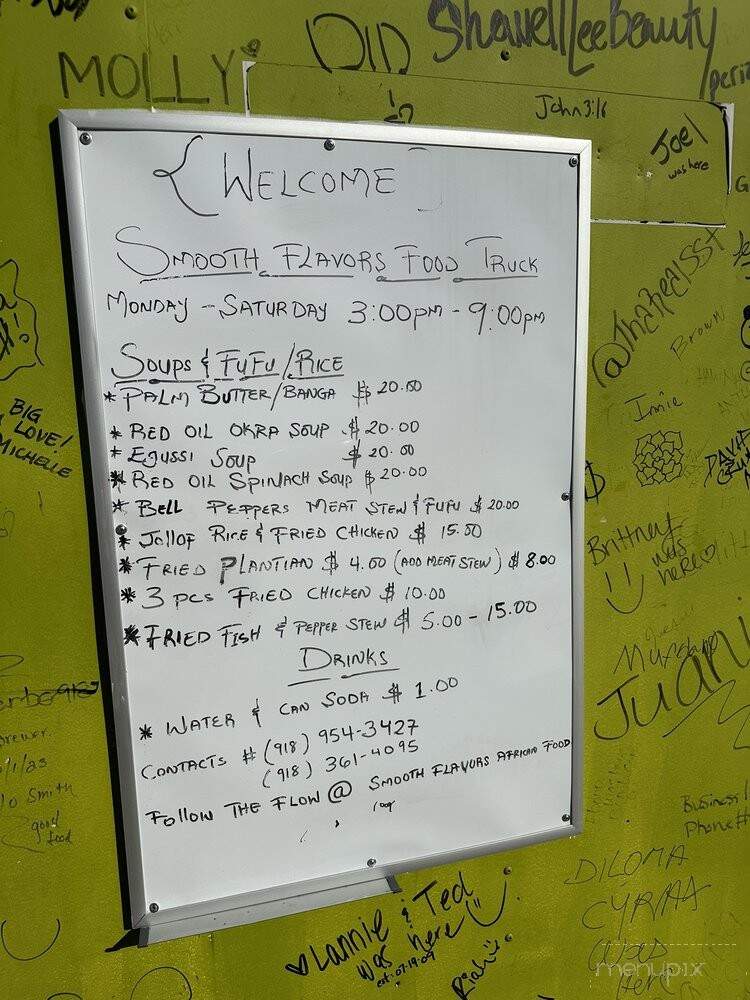 MOLLY
DID
ShawellLeeBeauty
John3:16
Joel
was here
WELCOME
SMOOTH FLAVORS FOOD TRUCK
MONDAY - SATURDAY 3:00pm - 9:00pm
SOUPS & FUFU/RICE
* PALM BUTTER/BANGA $ 20.00
* RED OIL OKRA SOUP $20.00
* EJUSSI SOUP $20.00
* RED OIL SPINACH SOUP $20.00
* BELL PEPPERS MEAT STEW & FUFU $20.00
* JOLLOF RICE & FRIED CHICKEN $ 15.00
* FRIED PLANTIAN $ 4.00 (ADD MEAT STEW) $ 8.00
* 3 PCS FRIED CHICKEN $ 10.00
* FRIED FISH & PEPPER STEW $ 5.00 - 15.00
DRINKS
* WATER & CAN SODA $ 1.00
CONTACTS # (918) 954-3427
(918) 361-4095
FOLLOW THE FLOW @ SMOOTH FLAVORS AFRICAN FOOD
BIG
LOVE!
MICHELLE
Brown
Innie
Brittney
was
here
Juani
Smith
good
food
Business
Phone#
DILOMA
Lannie & Ted
was here
est. 07.19.09
menupix